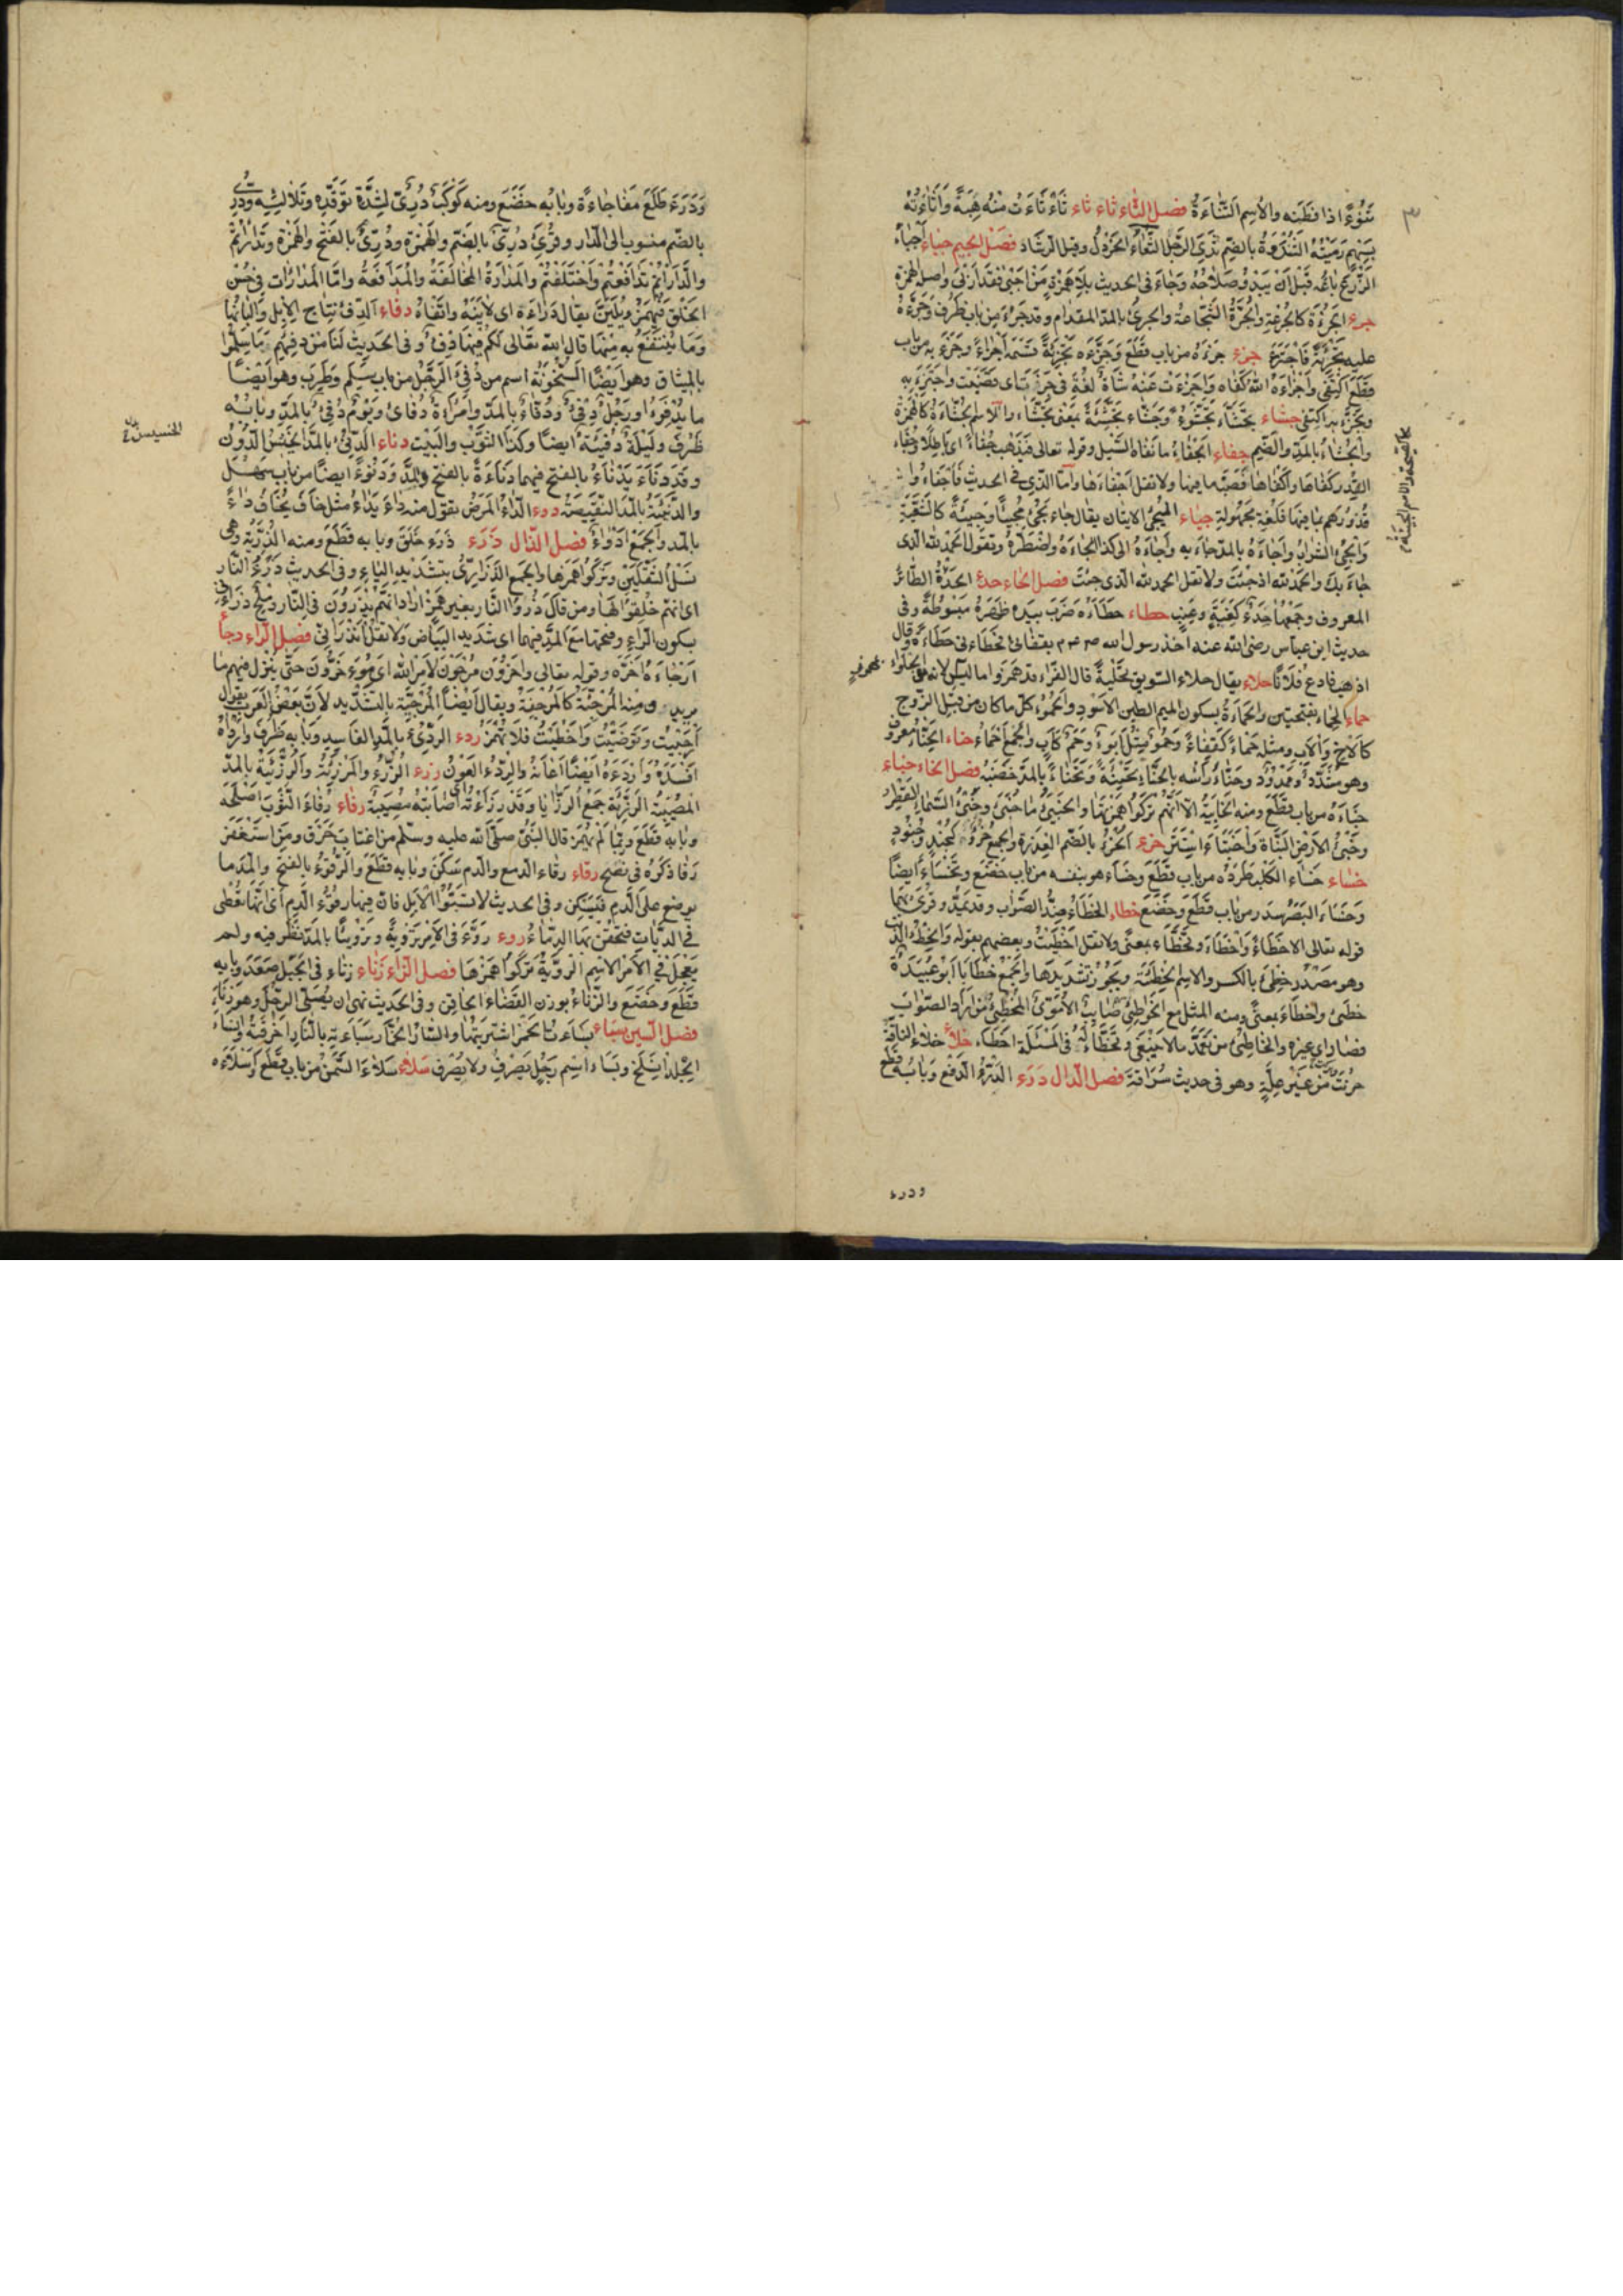 نتوءا اذا قطنه والاسم التناءة فصل الثاء ثاء ثاء ثاء ثاءت منه هيبة واثاءته
بسهم رميته الثندوة بالضم ثدي الرجل الثفاء الخردل وقيل الرشاد فصل الجيم جباء اجباء
الزرع باعه قبل ان يبدو صلاحه وجاء في الحديث بلا همزة من اجبى فقد اربى واصله الهمزة
جرء الجرءة كالجرعة والجرة الشجاعة والجريء بالمد المقدام وقد جرء من باب ظرف وجرءه
عليه تجرئة فاجترء جزء جزءه من باب قطع وجزءه تجزئة قسمه اجزاء وجزء به من باب
قطع اكتفى واجزاءه الشيء كفاه واجزءت عنه شاة لغة في جزت اى قضت واجتزء به
وتجزء به اكتفى جشاء تجشاء تجشوء وجشاء تجشئة بمعنى تجشاء والاسم الجشاءة كالهمزة
والجشاء بالمد والضم جفاء الجفاء ما نفاه السيل وقوله تعالى فيذهب جفاء اي باطلا وجفاء
القدر كفاها واكفاها فصبه ما فيها ولا تقل اجفاءها واما الذي في الحديث فاجفاءوا
قدورهم بما فيها فلغة مجهولة جياء المجيء الاتيان يقال جاء يجيء مجيئا وجيئة كالنقيبة
والجيء الشراب واجاءه بالمد جاء به واجاءه الى كذا الجاءه واضطره وتقول الحمد لله الذي
جاء بك والحمد لله اذ جئت ولا تقل الحمد لله الذي جئت فصل الحاء حدء الحدءة الطائر
المعروف وجمعها حدء كعنبة وعنب حطاء حطاءه ضرب بيده ظهره مبسوطة وفي
حديث ابن عباس رضى الله عنه اخذ رسول الله بقفائي فحطاءنى حطاءة وقال
اذهب فادع فلانا حلاء يقال حلاء السويق تحلئة قال الفراء قد همزوا ما ليس بمهموز لانه من الحلواء
حماء الحماء بفتحتين والحماءة بسكون الميم الطين الاسود والحموء كل ما كان من قبل الزوج
كالاخ والاب ومثله حماء كقفاء وحمو مثل ابو وحم كاب والجمع احماء حناء الحناء معروف
وهو مشدد وممدود وحناء راسه بالحناء تحنيئة وتحناء بالمد خضبه فصل الخاء خباء
خباءه من باب قطع ومنه الخابية الا انهم تركوا همزتها والخبيء ما خبئ وخبء السماء القطر
وخبء الارض النبات واختباء استتر خرء الخرء بالضم العذرة والجمع خروء كجند وجنود
خساء خساء الكلب طرده من باب قطع وخساء هو بنفسه من باب خضع وتخساء ايضا
وخساء البصر سدر من باب قطع وخضع خطاء الخطاء ضد الصواب وقد يمد وقرئ بهما
قوله تعالى الا خطاء واخطاء وتخطاء بمعنى ولا تقل اخطيت وبعضهم يقوله والخطء الذنب
وهو مصدر خطئ بالكسر والاسم الخطيئة ويجوز تشديدها والجمع خطايا ابو عبيدة
خطئ واخطاء بمعنى ومنه المثل مع الخواطئ سهم صائب الاموي المخطئ من اراد الصواب
فصار الى غيره والخاطئ من تعمد ما لا ينبغى وتخطاء له في المسئلة اخطاء خلاء خلاء الناقة
حرنت من غير علة وهو في حديث سراقة فصل الدال درء الدرء الدفع وبابه قطع
ودرء
ودرء طلع مفاجاءة وبابه خضع ومنه كوكب دريء لشدة توقده وتلالئه ودرى
بالضم منسوب الى الدار وقرئ دريء بالضم والهمزة ودريء بالفتح والهمزة وتداراتم
والداراتم تدافعتم واختلفتم والمدارة المخالفة والمدافعة واما المدارات في حسن
الخلق فيهمز ويلين يقال داراءه اي لاينه واتقاه دفاء الدفء نتاج الابل والبانها
وما ينتفع به منها قال الله تعالى لكم فيها دفء وفي الحديث لنا من دفئهم ما سلموا
بالميثاق وهو ايضا السخونة اسم من دفئ الرجل من باب سلم وطرب وهو ايضا
ما يدفئ ورجل دفئ ودفاء بالمد وامراة دفاى ويوم دفئ بالمد وبابه
ظرف وليلة دفيئة ايضا وكذا الثوب والبيت دناء الدنيء بالمد الخسيس الدون
وقد دناء يدناء بالفتح فيهما دناءة بالفتح والمد ودنوء ايضا من باب سهل
والدنيئة بالمد النقيصة دوء الداء المرض يقول منه داء يداء مثل خاف يخاف داء
بالمد والجمع ادواء فصل الذال ذرء ذرء خلق وبابه قطع ومنه الذرية وهي
نسل الثقلين وتركوا همزها والجمع الذراري بتشديد الياء وفي الحديث ذرء النار
اى انهم خلقوا لها ومن قال ذروا النار بغير همز اراد انهم يذرون في النار وملح ذرءاني
بسكون الراء وفتحها مع المد فيهما اى شديد البياض ولا تقل انذراني فصل الراء رجاء
ارجاءه اخره وقوله تعالى واخرون مرجون لامر الله اي مؤخرون حتى ينزل فيهم ما
يريد ومنه المرجئة كالمرجعة ويقال ايضا المرجية بالتشديد لان بعض العرب يقول
ارجيت وتوضيت واخطيت فلا تهمز ردء الرديء بالمد الفاسد وبابه ظرف وارداه
افسده واردءه ايضا اعانه والردء العون رزء الرزء والمرزئة والرزيئة بالمد
المصيبة الرزيئة جمع الرزايا وقد رزاءته اى اصابته مصيبة رفاء رفاء الثوب اصلحه
وبابه قطع وربما لم يهمز قال النبي صلى الله عليه وسلم من اغتاب خرق ومن استغفر
رفا ذكره في نصح رقاء رقاء الدمع والدم سكن وبابه قطع والرقوء بالفتح والمد ما
يوضع على الدم فيسكن وفي الحديث لا تسبوا الابل فان فيها رقوء الدم اى انها تعطى
في الديات فتحقن بها الدماء روء روء في الامر تروية وترويئا بالمد نظر فيه ولم
يعجل في الامر الاسم الروية تركوا همزها فصل الزاء زناء زناء في الجبل صعد وبابه
قطع وخضع والزناء بوزن القضاء الحاقن وفي الحديث نهى ان يصلى الرجل وهو زناء
فصل السين سباء سباءت الخمر اشتريتها والسباء الخمار سباءته بالنار احرقته وانسباء
الجلد انسلخ وسباء اسم رجل يصرف ولا يصرف سلاء سلاء السمن من باب قطع واسلاءه